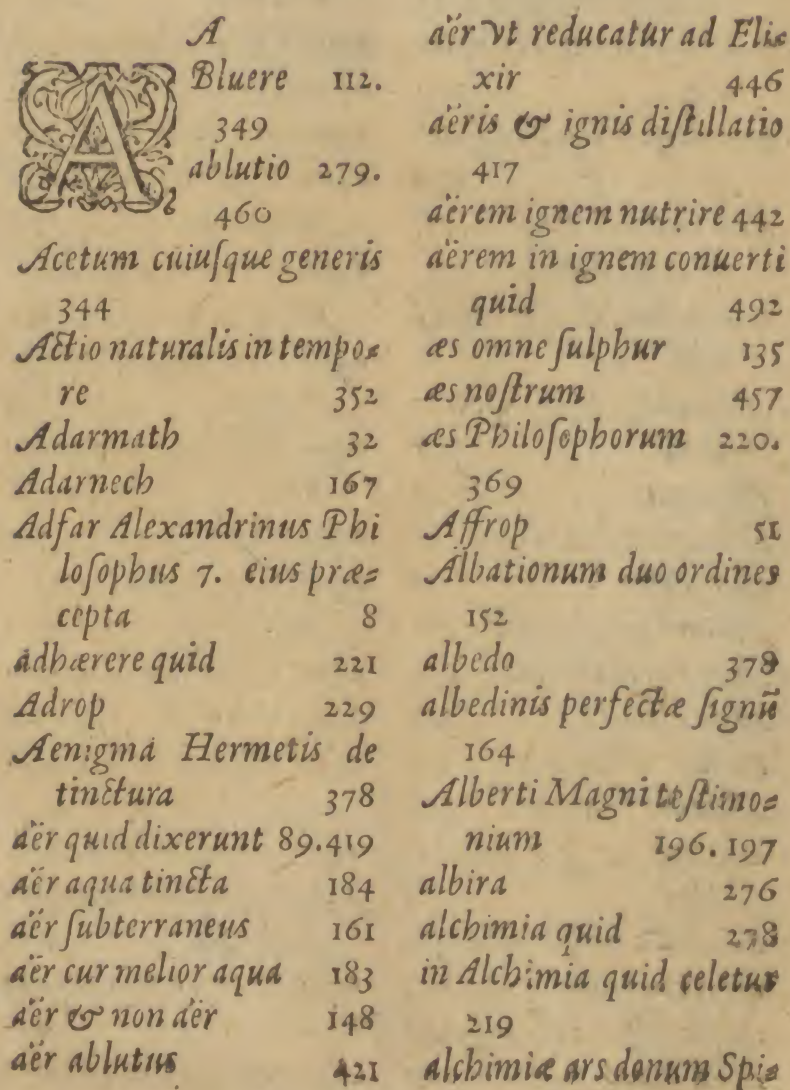 A
ABluere 112.
349
ablutio 279.
460
Acetum cuiuſque generis
344
Actio naturalis in tempo⸗
re 352
Adarmath 32
Adarnech 167
Adfar Alexandrinus Phi
loſophus 7. eius præ⸗
cepta 8
adhærere quid 221
Adrop 229
Aenigma Hermetis de
tinctura 378
aër quid dixerunt 89.419
aër aqua tincta 184
aër ſubterraneus 161
aër cur melior aqua 183
aër & non aër 148
aër ablutus 421
aër vt reducatur ad Eli⸗
xir 446
aëris & ignis diſtillatio
417
aërem ignem nutrire 442
aërem in ignem conuerti
quid 492
æs omne ſulphur 135
æs noſtrum 457
æs Philoſophorum 220.
369
Affrop 51
Albationum duo ordines
152
albedo 378
albedinis perfectæ ſignũ
164
Alberti Magni teſtimo⸗
nium 196.197
albira 276
alchimia quid 278
in Alchimia quid celetur
219
alchimiæ ars donum Spi⸗